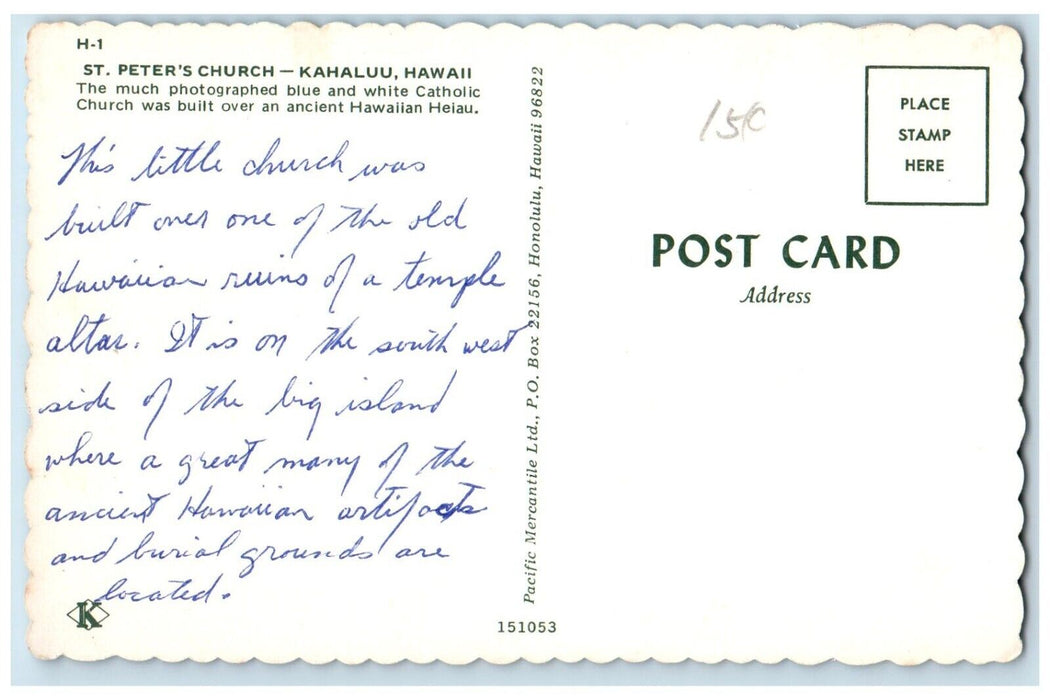 H-1
ST. PETER'S CHURCH — KAHALUU, HAWAII
The much photographed blue and white Catholic
Church was built over an ancient Hawaiian Heiau.
This little church was
built over one of the old
Hawaiian ruins of a temple
altar. It is on the south west
side of the big island
where a great many of the
ancient Hawaiian artifacts
and burial grounds are
located.
K
Pacific Mercantile Ltd., P.O. Box 22156, Honolulu, Hawaii 96822
151053
15¢
PLACE
STAMP
HERE
POST CARD
Address